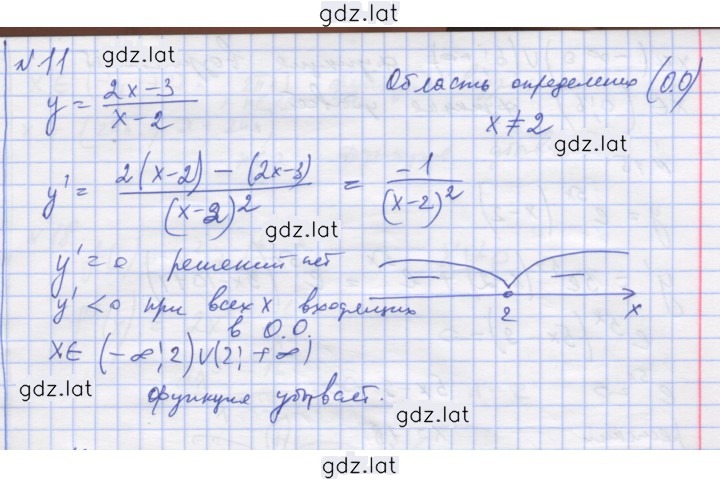 gdz.lat
№ 11
gdz.lat
y = (2x-3)/(x-2)
Область определения (О.О)
x ≠ 2
gdz.lat
y' = (2(x-2) - (2x-3))/(x-2)² = -1/(x-2)²
gdz.lat
y' = 0 решений нет
y' < 0 при всех x входящих
в О.О.
— —
2 x
x ∈ (-∞; 2) ∪ (2; +∞)
gdz.lat
функция убывает.
gdz.lat
gdz.lat